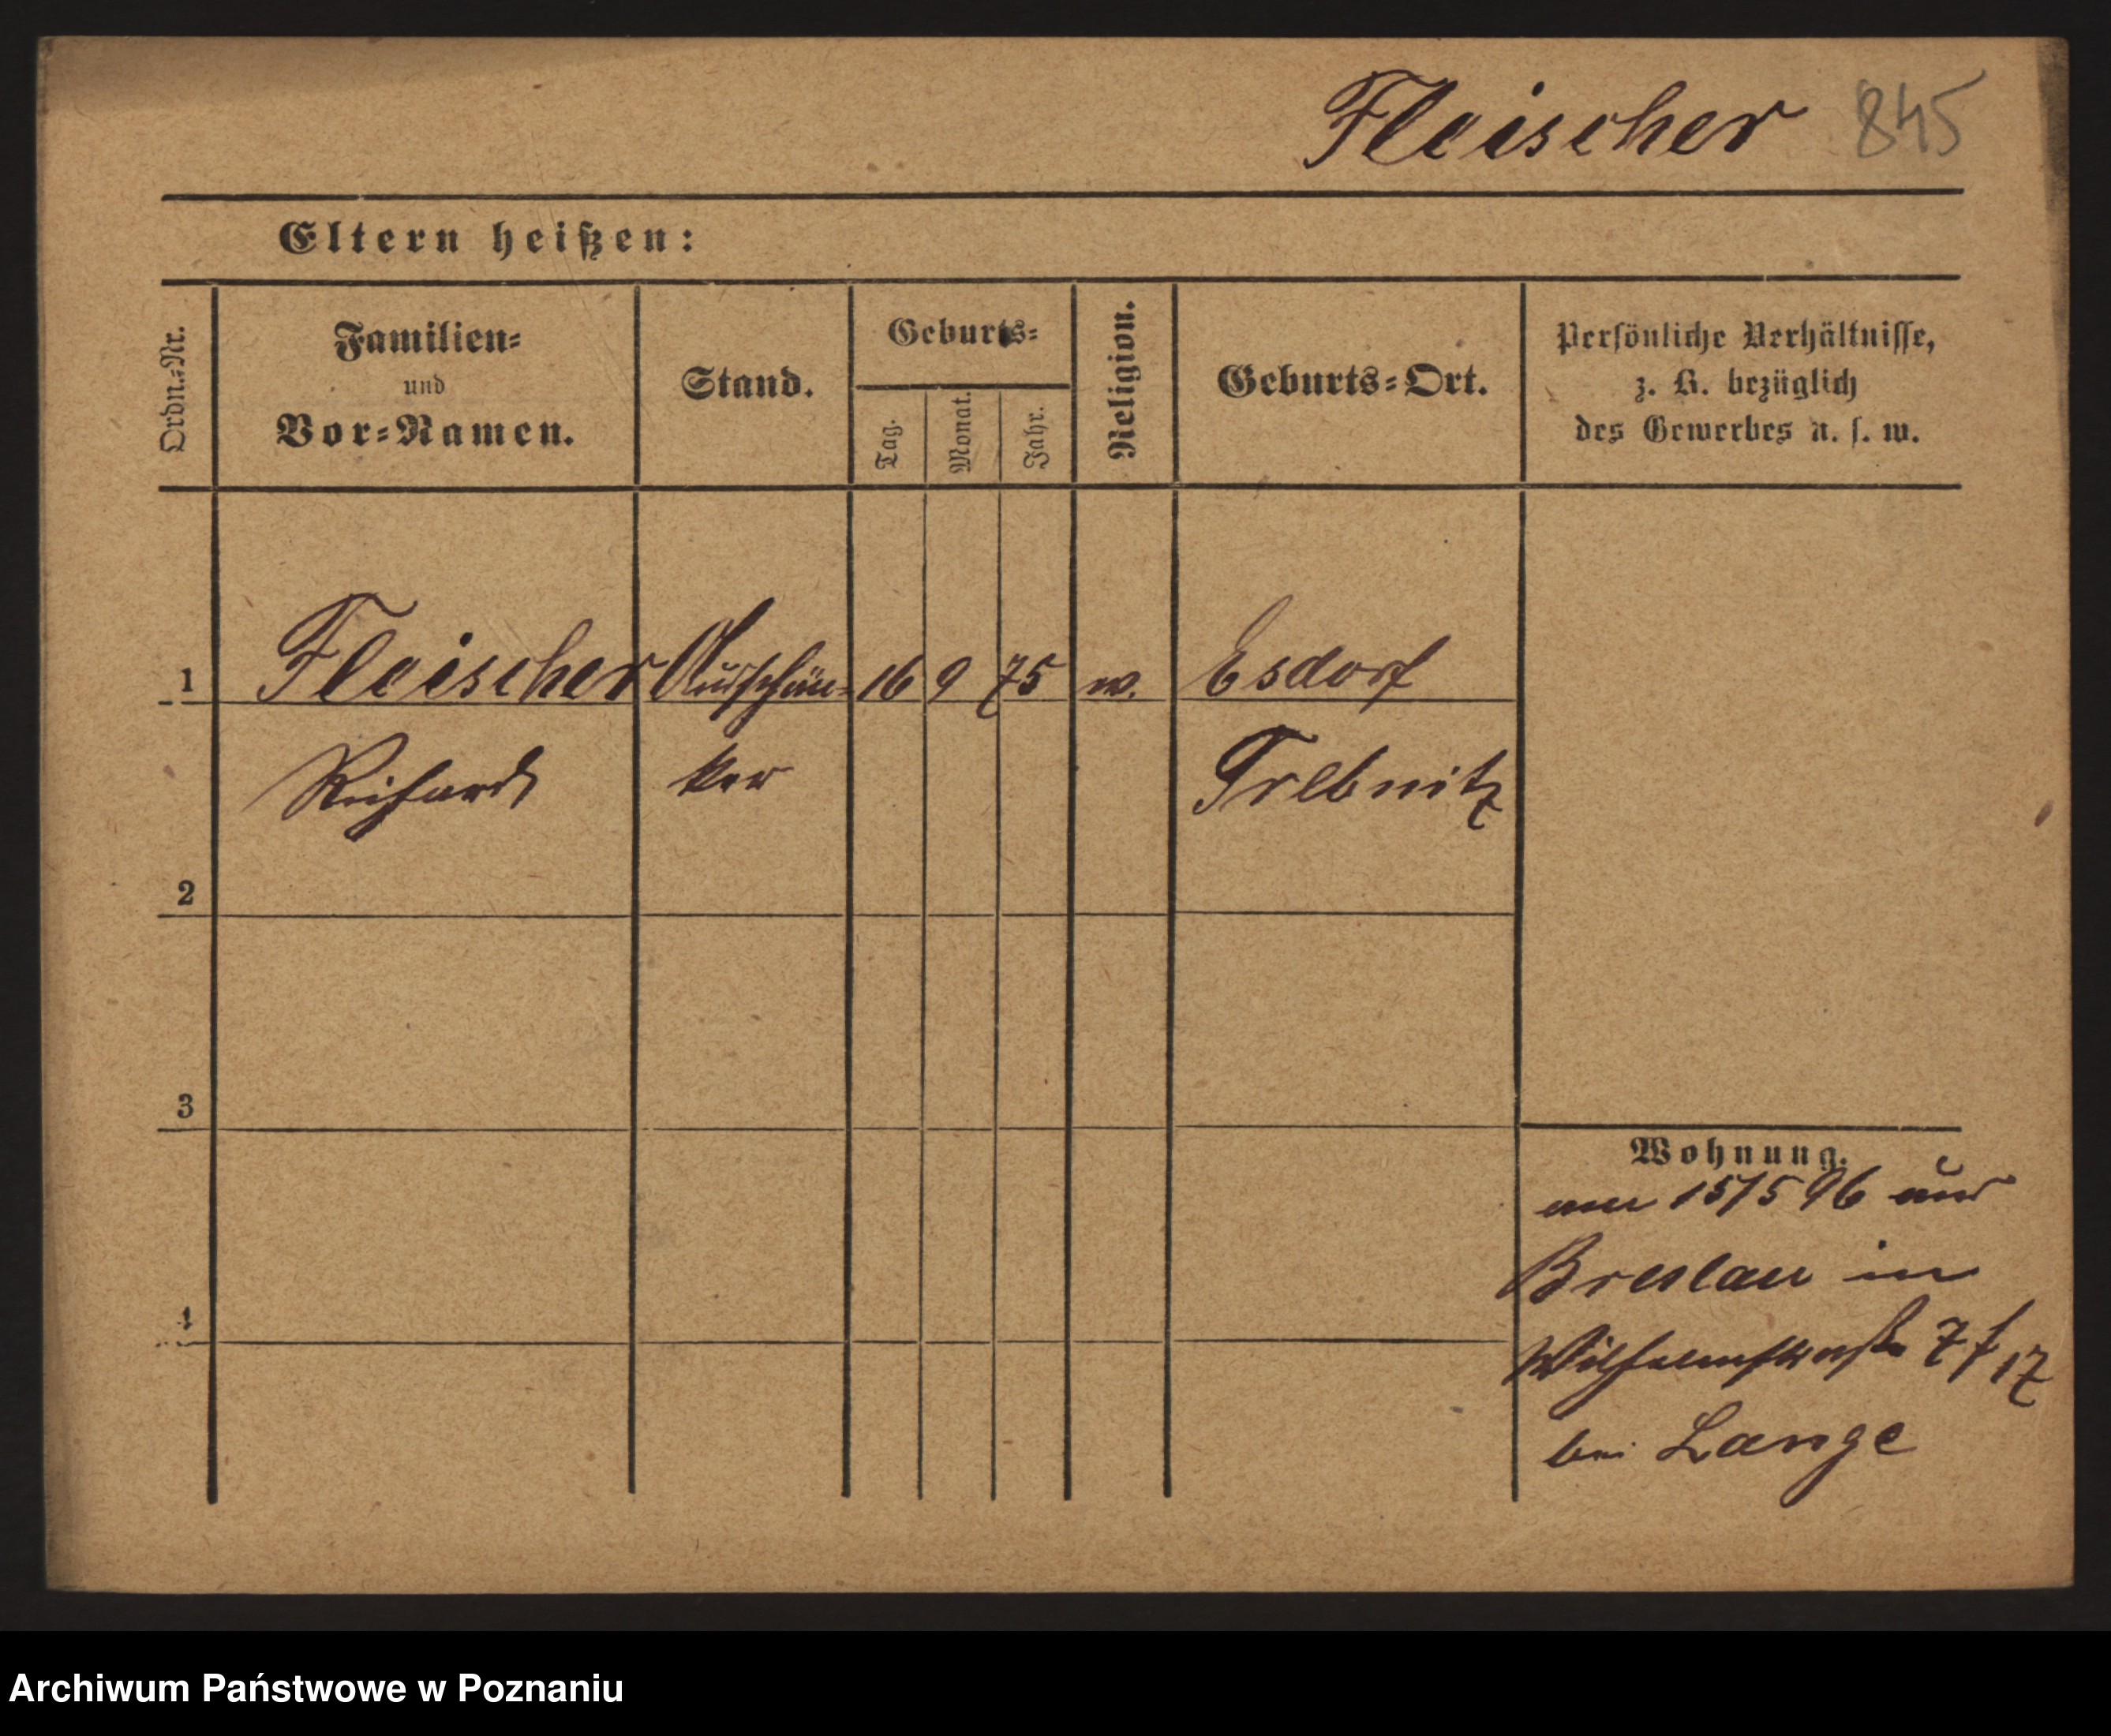 Fleischer 845
Eltern heißen:
Ordn.-Nr.
Familien-
und
Vor-Namen.
Stand.
Geburts-
Tag.
Monat.
Jahr.
Religion.
Geburts-Ort.
Persönliche Verhältnisse,
z. B. bezüglich
des Gewerbes u. s. w.
1 Fleischer Ausschän- 16 9 75 Esdorf
Richard ker Trebnitz
2
3
4
Wohnung.
am 15/5 96 aus
Breslau in
Wilhelmstraße 7 17
bei Lange
Archiwum Państwowe w Poznaniu